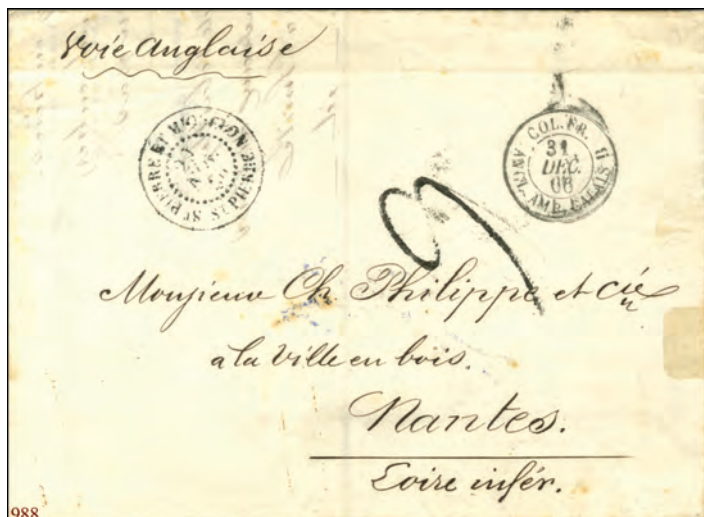 Voie Anglaise
ST PIERRE ET MIQUELON
ST PIERRE
COL. FR.
ANGL. AMB. CALAIS
31
DEC.
66
9
Monsieur Ch. Philippe et Cie
à la Ville en bois.
Nantes.
Loire infér.
988